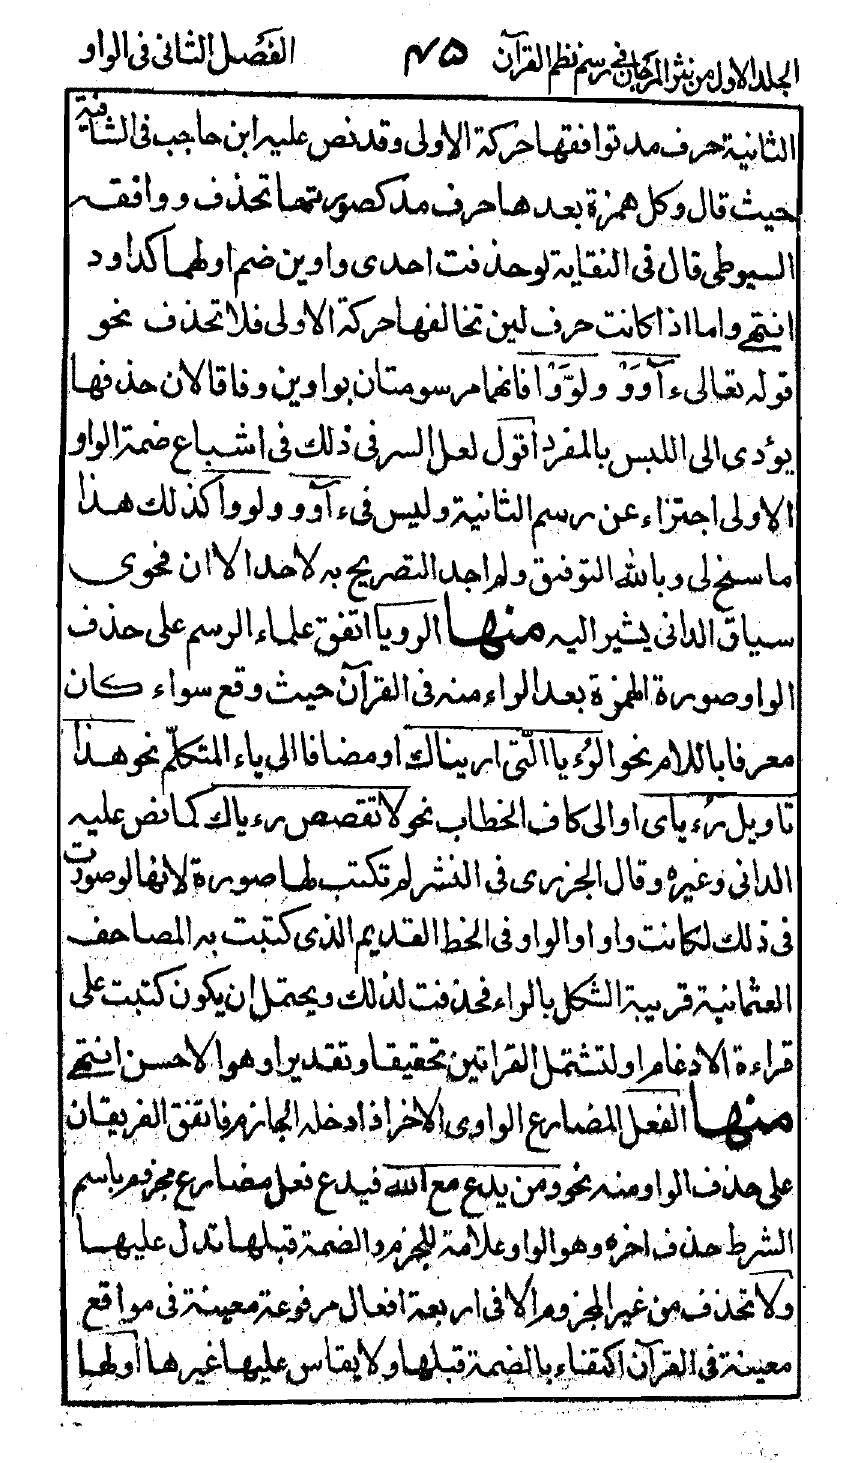 الجلد الاول من نثر المرجان في رسم نظم القرآن ٧٥ الفصل الثانی فی الواو
الثانیة حرف مد توافقها حرکة الاولی وقد نص علیه ابن حاجب فی الشافیة
حیث قال وکل همزة بعدها حرف مد کصورتها تحذف ووافقه
السیوطی قال فی النقایة لو حذفت احدی واوین ضم اولهما کداود
انتهی واما اذا کانت حرف لین تخالفها حرکة الاولی فلا تحذف نحو
قوله تعالی ءآوَوْ ولَوَّوْا فانهما مرسومتان بواوین وفاقا لان حذفها
یؤدی الی اللبس بالمفرد اقول لعل السر فی ذلك فی اشباع ضمة الواو
الاولی اجتزاء عن رسم الثانیة ولیس فی ءآوو ولووا کذلك هذا
ما سنح لی وبالله التوفیق ولم اجد التصریح به لاحد الا ان فحوی
سیاق الدانی یشیر الیه منها الرویا اتفق علماء الرسم علی حذف
الواو صورة الهمزة بعد الراء منه فی القرآن حیث وقع سواء کان
معرفا باللام نحو الرُءیا الّتی اریناك او مضافا الی یاء المتکلّم نحو هذا
تاویل رُءیای او الی کاف الخطاب نحو لا تقصص رءیاك کما نص علیه
الدانی وغیره وقال الجزری فی النشر لم تکتب لها صورة لانها لو صورت
فی ذلك لکانت واوا والواو فی الخط القدیم الذی کتبت به المصاحف
العثمانیة قریبة الشکل بالراء فحذفت لذلك ویحتمل ان یکون کتبت علی
قراءة الادغام او لتشتمل القراتین تحقیقا وتقدیرا وهو الاحسن انتهی
منها الفعل المضارع الواوی الاخر اذا دخله الجازم فاتفق الفریقان
علی حذف الواو منه نحو ومن یدع مع الله فیدع فعل مضارع مجزوم باسم
الشرط حذف اخره وهو الواو علامة للجزم والضمة قبلها تدل علیها
ولا تحذف من غیر المجزوم الا فی اربعة افعال مرفوعة معینة فی مواقع
معینة فی القرآن اکتفاء بالضمة قبلها ولا یقاس علیها غیرها اولها